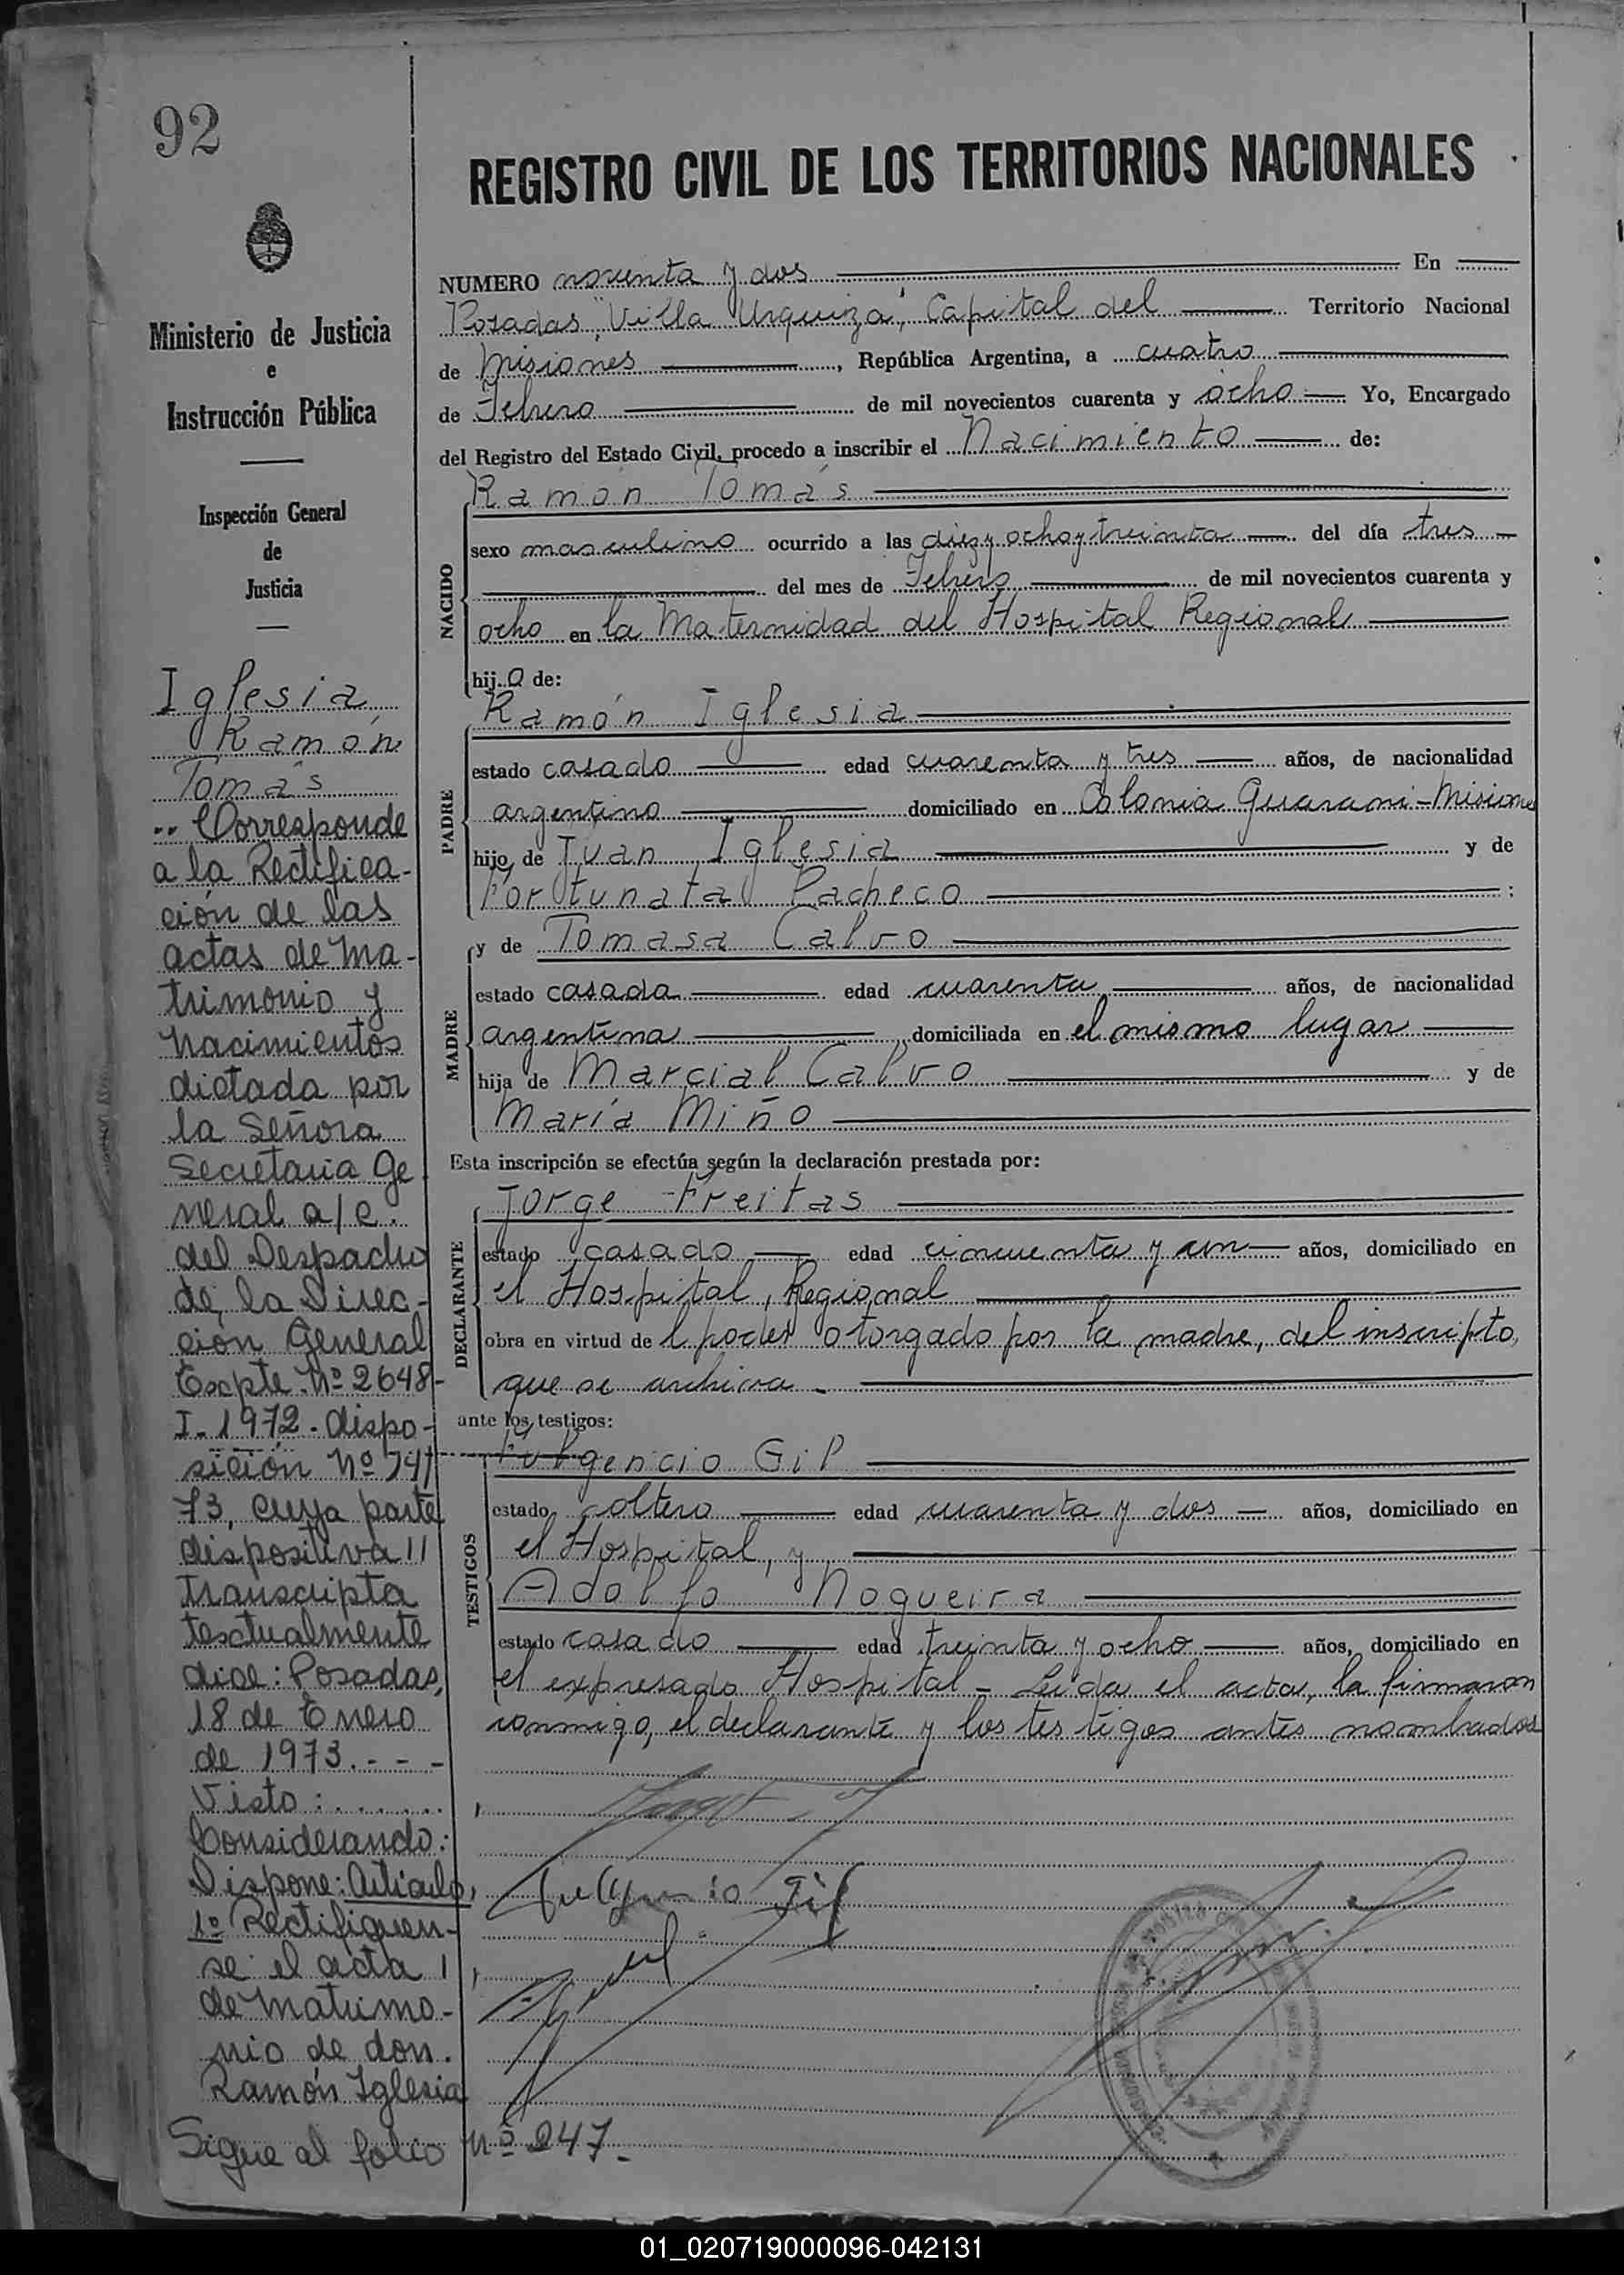 92
Ministerio de Justicia
e
Instrucción Pública
Inspección General
de
Justicia
Iglesia
Ramón
Tomás
.. Corresponde
a la Rectifica-
ción de las
actas de Ma-
trimonio y
Nacimientos
dictada por
la Señora
Secretaria Ge
neral a/c.
del Despacho
de la Direc-
ción General
Expte. Nº 2648-
I-1972. dispo-
sición Nº 747
73, cuya parte
dispositiva
transcripta
textualmente
dice: Posadas,
18 de Enero
de 1973. - - -
Visto: . . . . . .
Considerando:
Dispone: Artículo,
1º Rectifiquen-
se el acta
de Matrimo-
nio de don.
Ramón Iglesia
Sigue al folio Nº 247.-
REGISTRO CIVIL DE LOS TERRITORIOS NACIONALES
NUMERO noventa y dos En
Posadas, "Villa Urquiza", Capital del Territorio Nacional
de Misiones, República Argentina, a cuatro
de Febrero de mil novecientos cuarenta y ocho Yo, Encargado
del Registro del Estado Civil, procedo a inscribir el Nacimiento de:
Ramón Tomás
NACIDO
sexo masculino ocurrido a las diez y ocho y treinta del día tres
del mes de Febrero de mil novecientos cuarenta y
ocho en la Maternidad del Hospital Regional
hijo de:
PADRE
Ramón Iglesia
estado casado edad cuarenta y tres años, de nacionalidad
argentino domiciliado en Colonia Guarani-Misiones
hijo de Juan Iglesia y de
Fortunata Pacheco :
MADRE
y de Tomasa Calvo
estado casada edad cuarenta años, de nacionalidad
argentina domiciliada en el mismo lugar
hija de Marcial Calvo y de
María Miño
Esta inscripción se efectúa según la declaración prestada por:
DECLARANTE
Jorge Freitas
estado casado edad cincuenta y un años, domiciliado en
el Hospital Regional
obra en virtud del poder otorgado por la madre, del inscripto,
que se archiva.
ante los testigos:
TESTIGOS
Fulgencio Gil
estado soltero edad cuarenta y dos años, domiciliado en
el Hospital, y
Adolfo Nogueira
estado casado edad treinta y ocho años, domiciliado en
el expresado Hospital - Leída el acta, la firmaron
conmigo, el declarante y los testigos antes nombrados
Fulgencio Gil
01_020719000096-042131